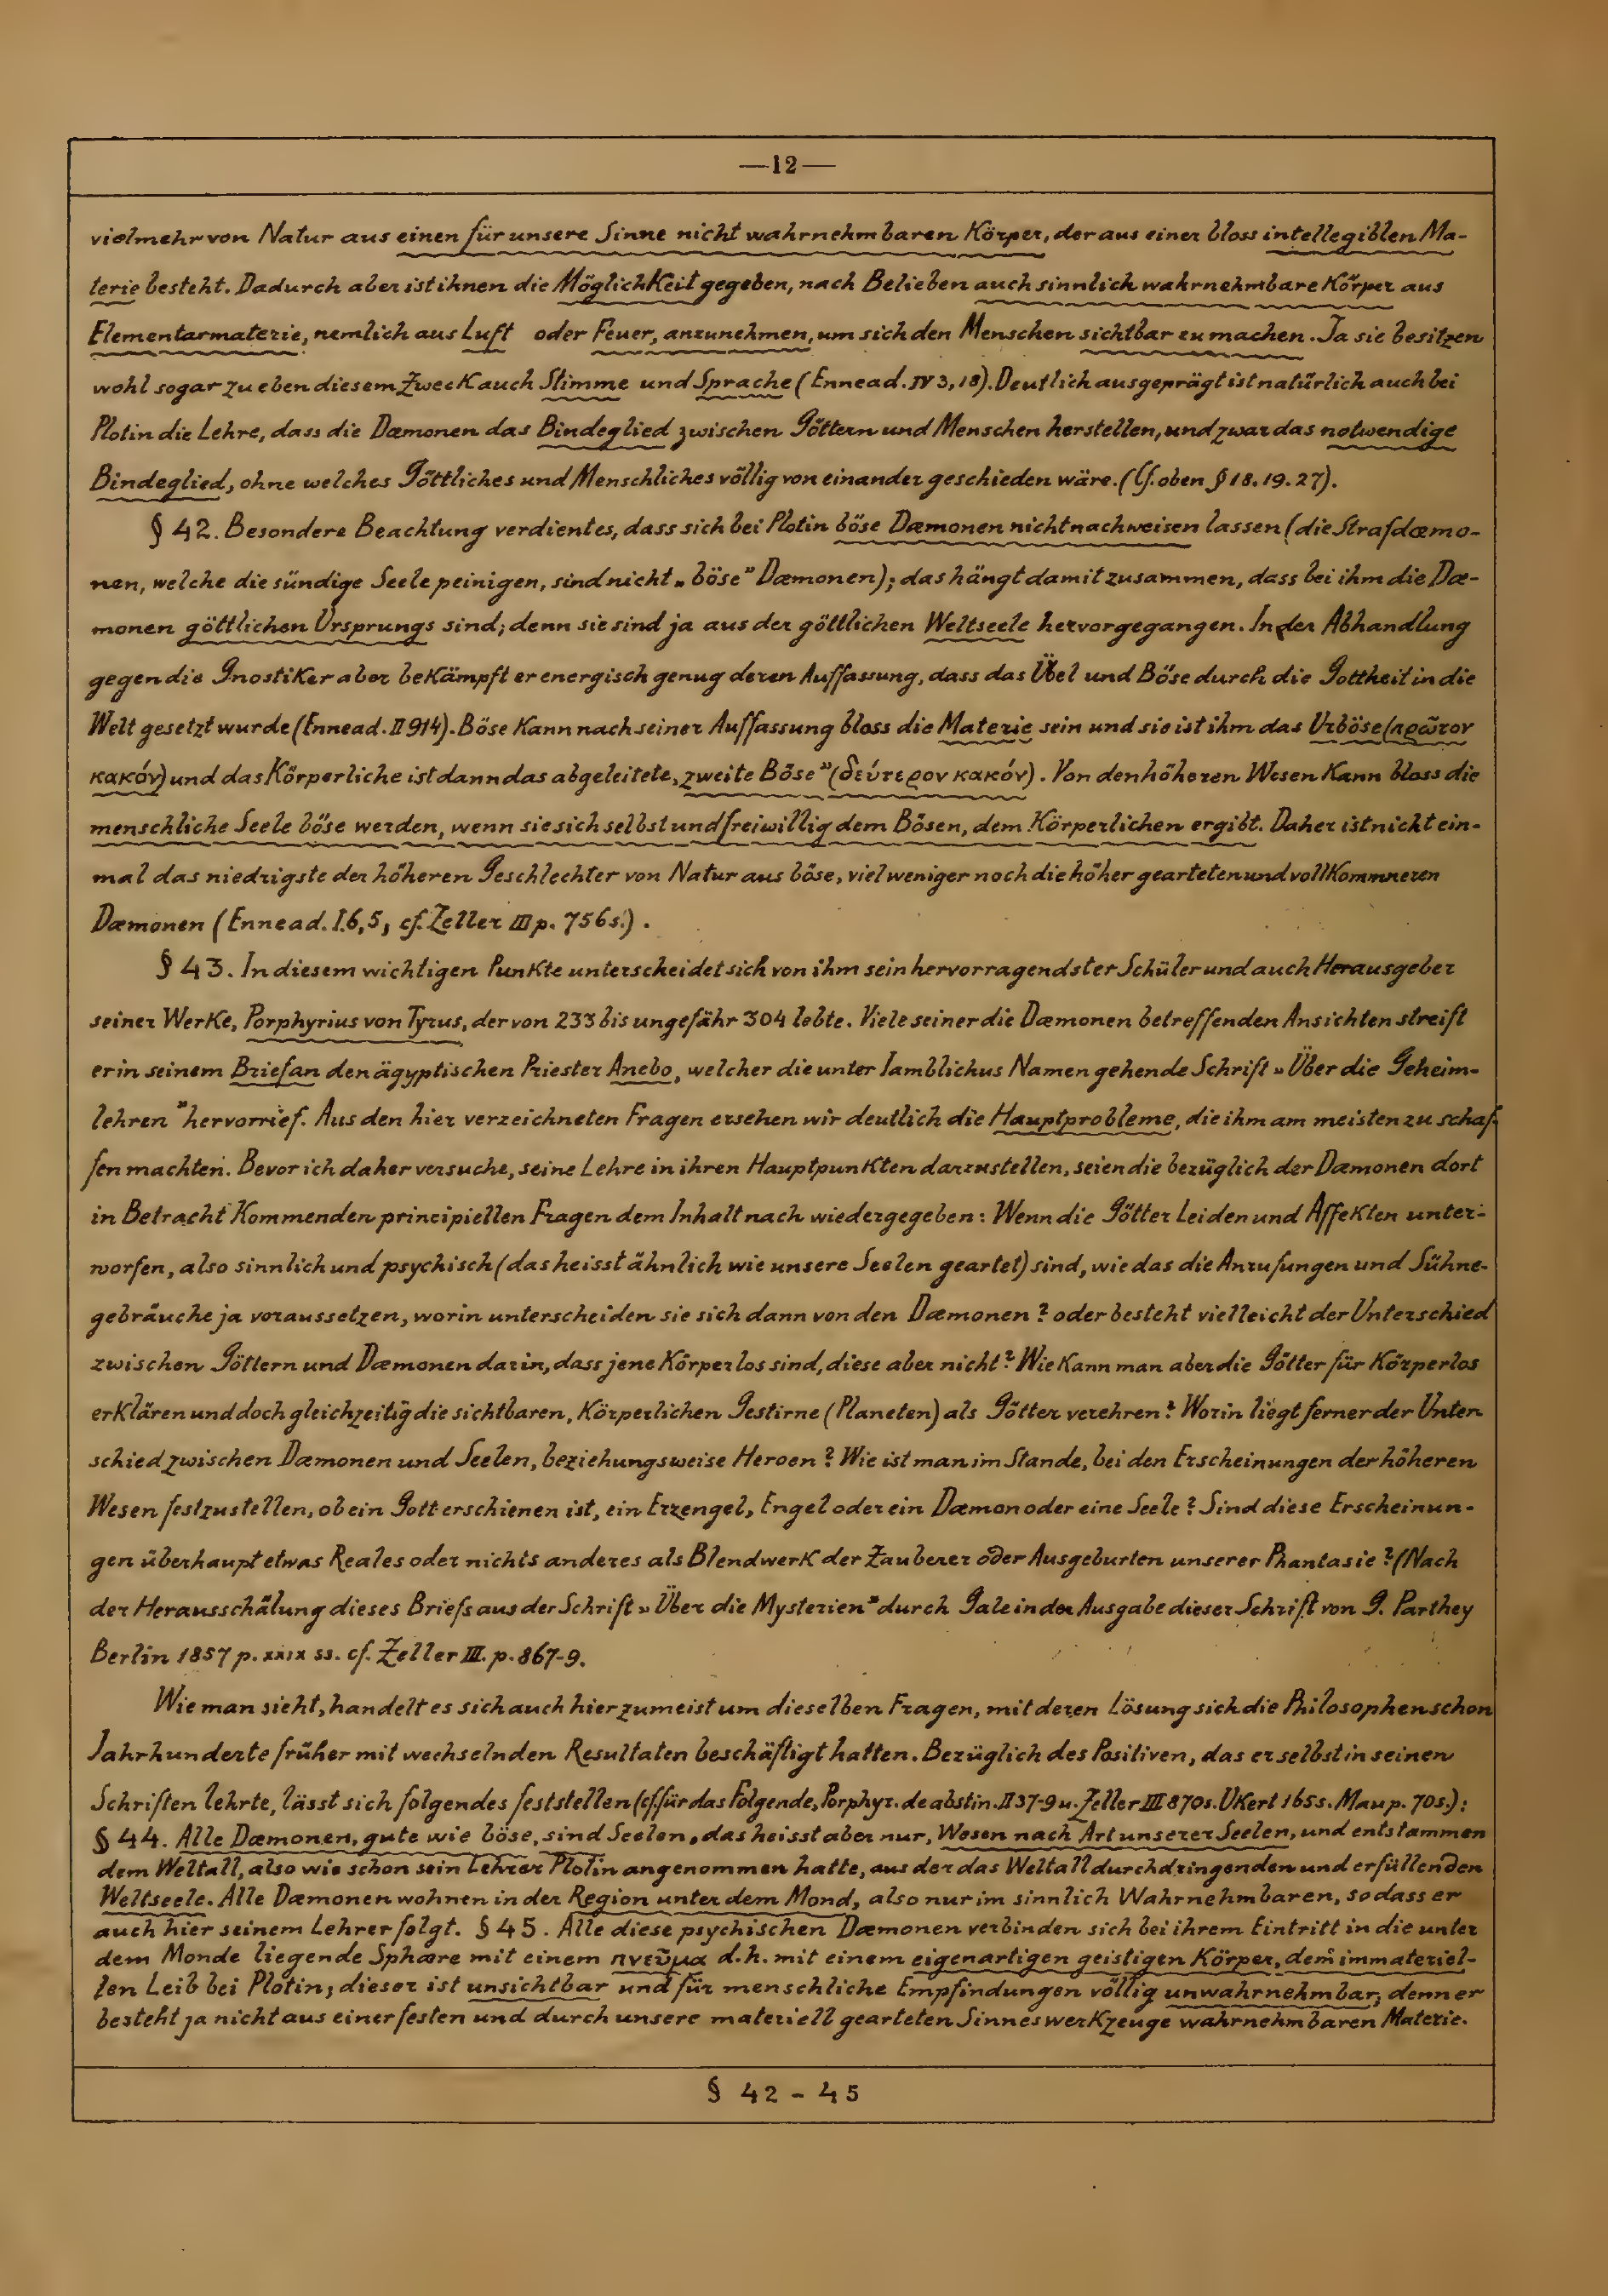 —12—
vielmehr von Natur aus einen für unsere Sinne nicht wahrnehmbaren Körper, der aus einer bloss intellegiblen Ma-
terie besteht. Dadurch aber ist ihnen die Möglichkeit gegeben, nach Belieben auch sinnlich wahrnehmbare Körper aus
Elementarmaterie, nemlich aus Luft oder Feuer, anzunehmen, um sich den Menschen sichtbar zu machen. Ja sie besitzen
wohl sogar zu eben diesem Zweck auch Stimme und Sprache (Ennead. IV 3, 18). Deutlich ausgeprägt ist natürlich auch bei
Plotin die Lehre, dass die Dæmonen das Bindeglied zwischen Göttern und Menschen herstellen, und zwar das notwendige
Bindeglied, ohne welches Göttliches und Menschliches völlig von einander geschieden wäre. (Cf. oben § 18. 19. 27).
§ 42. Besondere Beachtung verdient es, dass sich bei Plotin böse Dæmonen nicht nachweisen lassen (die Strafdæmo-
nen, welche die sündige Seele peinigen, sind nicht „böse” Dæmonen); das hängt damit zusammen, dass bei ihm die Dæ-
monen göttlichen Ursprungs sind; denn sie sind ja aus der göttlichen Weltseele hervorgegangen. In der Abhandlung
gegen die Gnostiker aber bekämpft er energisch genug deren Auffassung, dass das Übel und Böse durch die Gottheit in die
Welt gesetzt wurde (Ennead. II 914). Böse kann nach seiner Auffassung bloss die Materie sein und sie ist ihm das Urböse (πρᾶτον
κακόν) und das Körperliche ist dann das abgeleitete, „zweite Böse” (δεύτερον κακόν). Von den höheren Wesen kann bloss die
menschliche Seele böse werden, wenn sie sich selbst und freiwillig dem Bösen, dem Körperlichen ergibt. Daher ist nicht ein-
mal das niedrigste der höheren Geschlechter von Natur aus böse, viel weniger noch die höher gearteten und vollkommneren
Dæmonen (Ennead. I.6,5, cf. Zeller III p. 756s.).
§ 43. In diesem wichtigen Punkte unterscheidet sich von ihm sein hervorragendster Schüler und auch Herausgeber
seiner Werke, Porphyrius von Tyrus, der von 233 bis ungefähr 304 lebte. Viele seiner die Dæmonen betreffenden Ansichten streift
er in seinem Brief an den ägyptischen Priester Anebo, welcher die unter Iamblichus Namen gehende Schrift „Über die Geheim-
lehren” hervorrief. Aus den hier verzeichneten Fragen ersehen wir deutlich die Hauptprobleme, die ihm am meisten zu schaf-
fen machten. Bevor ich daher versuche, seine Lehre in ihren Hauptpunkten darzustellen, seien die bezüglich der Dæmonen dort
in Betracht kommenden principiellen Fragen dem Inhalt nach wiedergegeben: Wenn die Götter Leiden und Affekten unter-
worfen, also sinnlich und psychisch (das heisst ähnlich wie unsere Seelen geartet) sind, wie das die Anrufungen und Sühne-
gebräuche ja voraussetzen, worin unterscheiden sie sich dann von den Dæmonen? oder besteht vielleicht der Unterschied
zwischen Göttern und Dæmonen darin, dass jene körperlos sind, diese aber nicht? Wie kann man aber die Götter für körperlos
erklären und doch gleichzeitig die sichtbaren, körperlichen Gestirne (Planeten) als Götter verehren? Worin liegt ferner der Unter
schied zwischen Dæmonen und Seelen, beziehungsweise Heroen? Wie ist man im Stande, bei den Erscheinungen der höheren
Wesen festzustellen, ob ein Gott erschienen ist, ein Erzengel, Engel oder ein Dæmon oder eine Seele? Sind diese Erscheinun-
gen überhaupt etwas Reales oder nichts anderes als Blendwerk der Zauberer oder Ausgeburten unserer Phantasie? (Nach
der Herausschälung dieses Briefs aus der Schrift „Über die Mysterien” durch Gale in der Ausgabe dieser Schrift von G. Parthey
Berlin 1857 p. XXIX ss. cf. Zeller III. p. 867-9.
Wie man sieht, handelt es sich auch hier zumeist um dieselben Fragen, mit deren Lösung sich die Philosophen schon
Jahrhunderte früher mit wechselnden Resultaten beschäftigt hatten. Bezüglich des Positiven, das er selbst in seinen
Schriften lehrte, lässt sich folgendes feststellen (cf. für das Folgende, Porphyr. de abstin. II 37-9 u. Zeller III 870s. Ukert 165s. Mau p. 70s.):
§ 44. Alle Dæmonen, gute wie böse, sind Seelen, das heisst aber nur, Wesen nach Art unserer Seelen, und entstammen
dem Weltall, also wie schon sein Lehrer Plotin angenommen hatte, aus der das Weltall durchdringenden und erfüllenden
Weltseele. Alle Dæmonen wohnen in der Region unter dem Mond, also nur im sinnlich Wahrnehmbaren, sodass er
auch hier seinem Lehrer folgt. § 45. Alle diese psychischen Dæmonen verbinden sich bei ihrem Eintritt in die unter
dem Monde liegende Sphære mit einem πνεῦμα d.h. mit einem eigenartigen geistigen Körper, dem immateriel-
len Leib bei Plotin; dieser ist unsichtbar und für menschliche Empfindungen völlig unwahrnehmbar; denn er
besteht ja nicht aus einer festen und durch unsere materiell gearteten Sinneswerkzeuge wahrnehmbaren Materie.
§ 42 - 45